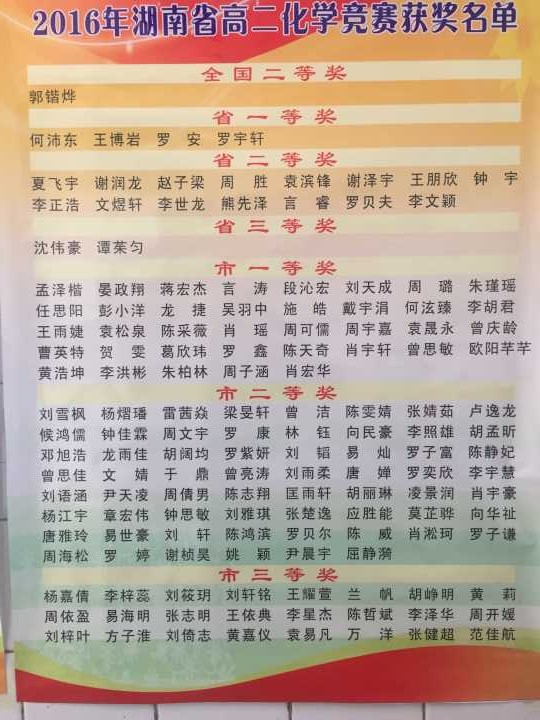 2016年湖南省高二化学竞赛获奖名单
全国二等奖
郭锴烨
省一等奖
何沛东 王博岩 罗安 罗宇轩
省二等奖
夏飞宇 谢润龙 赵子梁 周胜 袁滨锋 谢泽宇 王朋欣 钟宇
李正浩 文煜轩 李世龙 熊先泽 言睿 罗贝夫 李文颖
省三等奖
沈伟豪 谭茱匀
市一等奖
孟泽楷 晏政翔 蒋宏杰 言涛 段沁宏 刘天成 周璐 朱瑾瑶
任思阳 彭小洋 龙捷 吴羽中 施皓 戴宇涓 何泫臻 李胡君
王雨婕 袁松泉 陈采薇 肖瑶 周可儒 周宇嘉 袁晟永 曾庆龄
曹英特 贺雯 葛欣玮 罗鑫 陈天奇 肖宇轩 曾思敏 欧阳芊芊
黄浩坤 李洪彬 朱柏林 周子涵 肖宏华
市二等奖
刘雪枫 杨熠璠 雷茜焱 梁旻轩 曾洁 陈雯婧 张婧茹 卢逸龙
候鸿儒 钟佳霖 周文宇 罗康 林钰 向民豪 李照雄 胡孟昕
邓旭浩 龙雨佳 胡阔均 罗紫妍 刘韬 易灿 罗子富 陈静妃
曾思佳 文婧 于鼎 曾亮涛 刘雨柔 唐婵 罗奕欣 李宇慧
刘语涵 尹天凌 周倩男 陈志翔 匡雨轩 胡丽琳 凌景润 肖宇豪
杨江宇 章宏伟 钟思敏 刘雅琪 张楚逸 应胜能 莫芷骅 向华祉
唐雅玲 易世豪 刘轩 陈鸿滨 罗贝尔 陈威 肖淞珂 罗子谦
周海松 罗婷 谢桢昊 姚颖 尹晨宇 屈静漪
市三等奖
杨嘉倩 李梓蕊 刘筱玥 刘轩铭 王耀萱 兰帆 胡峥明 黄莉
周依盈 易海明 张志明 王依典 李星杰 陈哲斌 李泽华 周开媛
刘梓叶 方子淮 刘倚志 黄嘉仪 袁易凡 万洋 张健超 范佳航